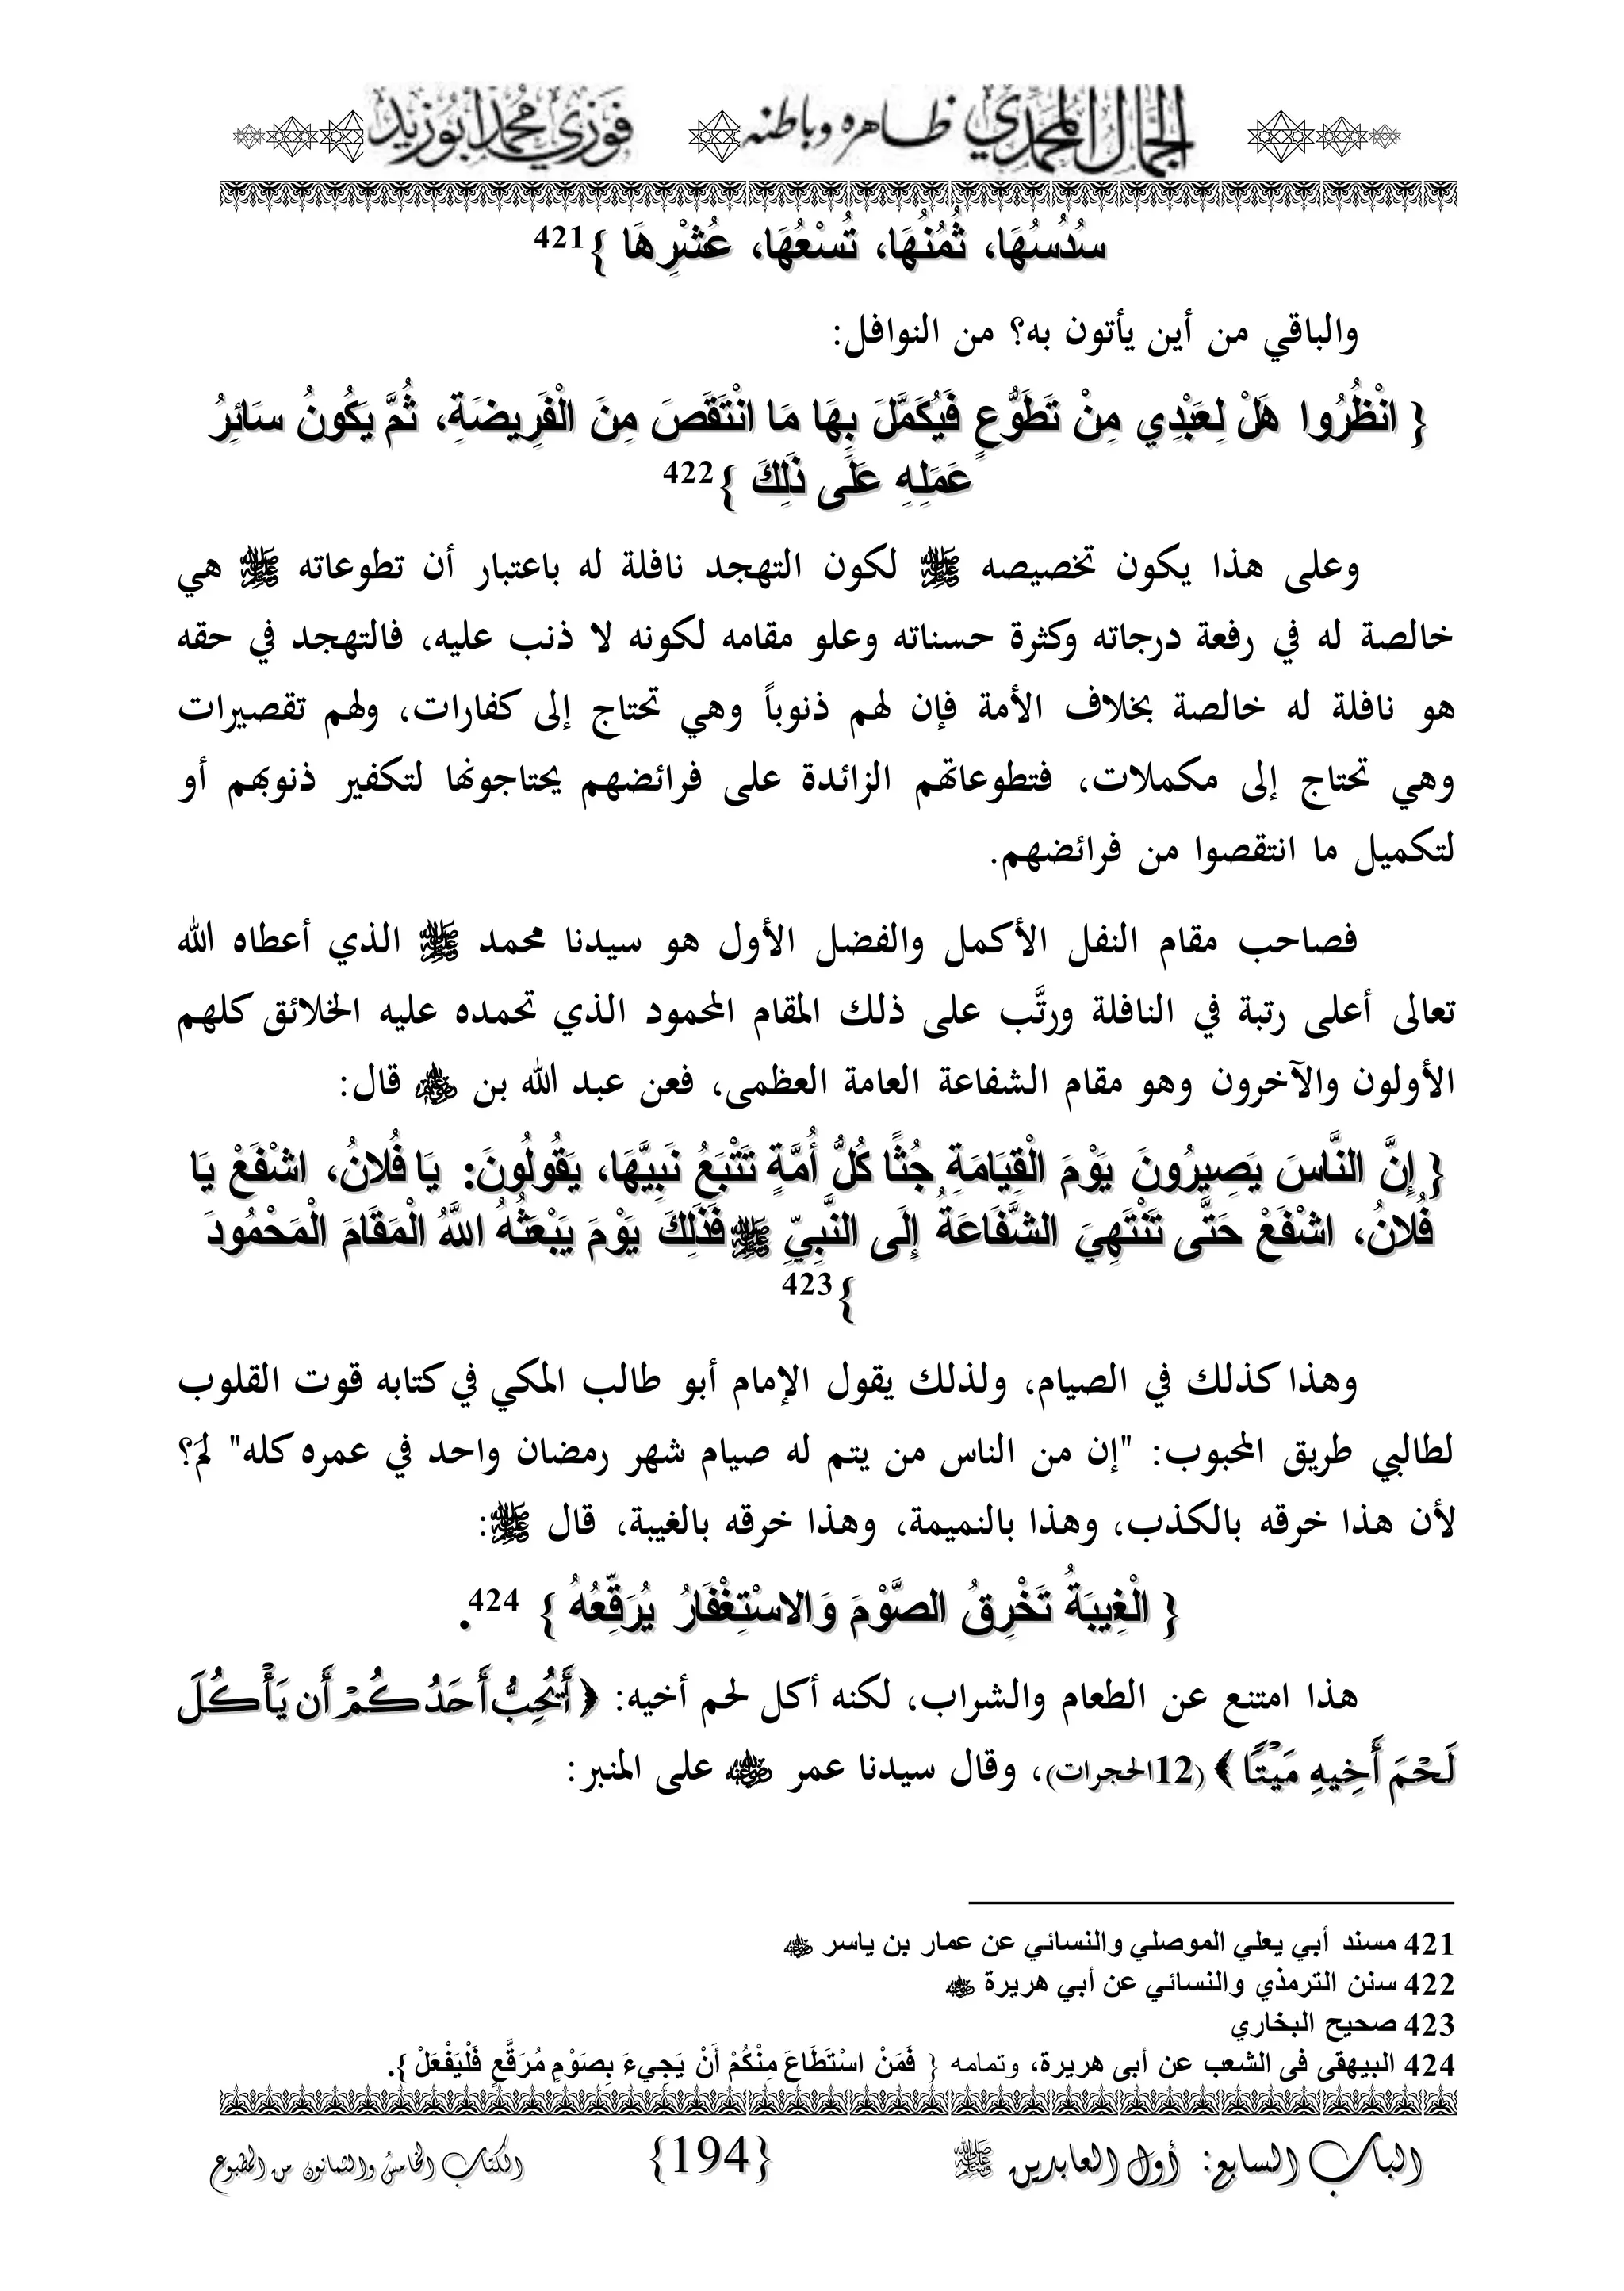 الجمال المحمدي ظاهره وباطنه فوزي محمد أبوزيد
سُدُسُهَا، ثُمُنُهَا، تُسْعُهَا، عُشْرِهَا }421
والباقي من أين يأتون به؟ من النوافل:
{ انْظُرُوا هَلْ لِعَبْدِي مِنْ تَطَوُّعٍ فَيُكَمَّلَ بِهَا مَا انْتَقَصَ مِنَ الْفَرِيضَةِ، ثُمَّ يَكُونُ سَائِرُ
عَمَلِهِ عَلَى ذَلِكَ }422
وعلى هذا يكون تخصيصه ﷺ لكون التهجد نافلة له باعتبار أن تطوعاته ﷺ هي
خالصة له في رفعة درجاته وكثرة حسناته وعلو مقامه لكونه لا ذنب عليه، فالتهجد في حقه
هو نافلة له خالصة بخلاف الأمة فإن لهم ذنوباً وهي تحتاج إلى كفارات، ولهم تقصيرات
وهي تحتاج إلى مكملات، فتطوعاتهم الزائدة على فرائضهم يحتاجونها لتكفير ذنوبهم أو
لتكميل ما انتقصوا من فرائضهم.
فصاحب مقام النفل الأكمل والفضل الأول هو سيدنا محمد ﷺ الذي أعطاه الله
تعالى أعلى رتبة في النافلة ورتَّب على ذلك المقام المحمود الذي تحمده عليه الخلائق كلهم
الأولون والآخرون وهو مقام الشفاعة العامة العظمى، فعن عبد الله بن رضي الله عنه قال:
{ إِنَّ النَّاسَ يَصِيرُونَ يَوْمَ الْقِيَامَةِ جُثًا كُلُّ أُمَّةٍ تَتْبَعُ نَبِيَّهَا، يَقُولُونَ: يَا فُلانُ، اشْفَعْ يَا
فُلانُ، اشْفَعْ حَتَّى تَنْتَهِيَ الشَّفَاعَةُ إِلَى النَّبِيِّ ﷺ فَذَلِكَ يَوْمَ يَبْعَثُهُ اللَّهُ الْمَقَامَ الْمَحْمُودَ
}423
وهذا كذلك في الصيام، ولذلك يقول الإمام أبو طالب المكي في كتابه قوت القلوب
لطالبي طريق المحبوب: "إن من الناس من يتم له صيام شهر رمضان واحد في عمره كله" لَم؟
لأن هذا خرقه بالكذب، وهذا بالنميمة، وهذا خرقه بالغيبة، قال ﷺ:
{ الْغِيبَةُ تَخْرِقُ الصَّوْمَ وَالاسْتِغْفَارُ يُرَقِّعُهُ } 424.
هذا امتنع عن الطعام والشراب، لكنه أكل لحم أخيه: ﴿ أَيُحِبُّ أَحَدُكُمْ أَن يَأْكُلَ
لَحْمَ أَخِيهِ مَيْتًا ﴾ (12الحجرات)، وقال سيدنا عمر رضي الله عنه على المنبر:
421 مسند أبي يعلي الموصلي والنسائي عن عمار بن ياسر رضي الله عنه
422 سنن الترمذي والنسائي عن أبي هريرة رضي الله عنه
423 صحيح البخاري
424 البيهقى فى الشعب عن أبى هريرة، وتمامه { فَمَنْ اسْتَطَاعَ مِنْكُمْ أَنْ يَجِيءَ بِصَوْمٍ مُرَقَّعٍ فَلْيَفْعَلْ }.
الباب السابع: أول العابدين ﷺ {194} الكتاب الخامس والثمانون من المطبوع